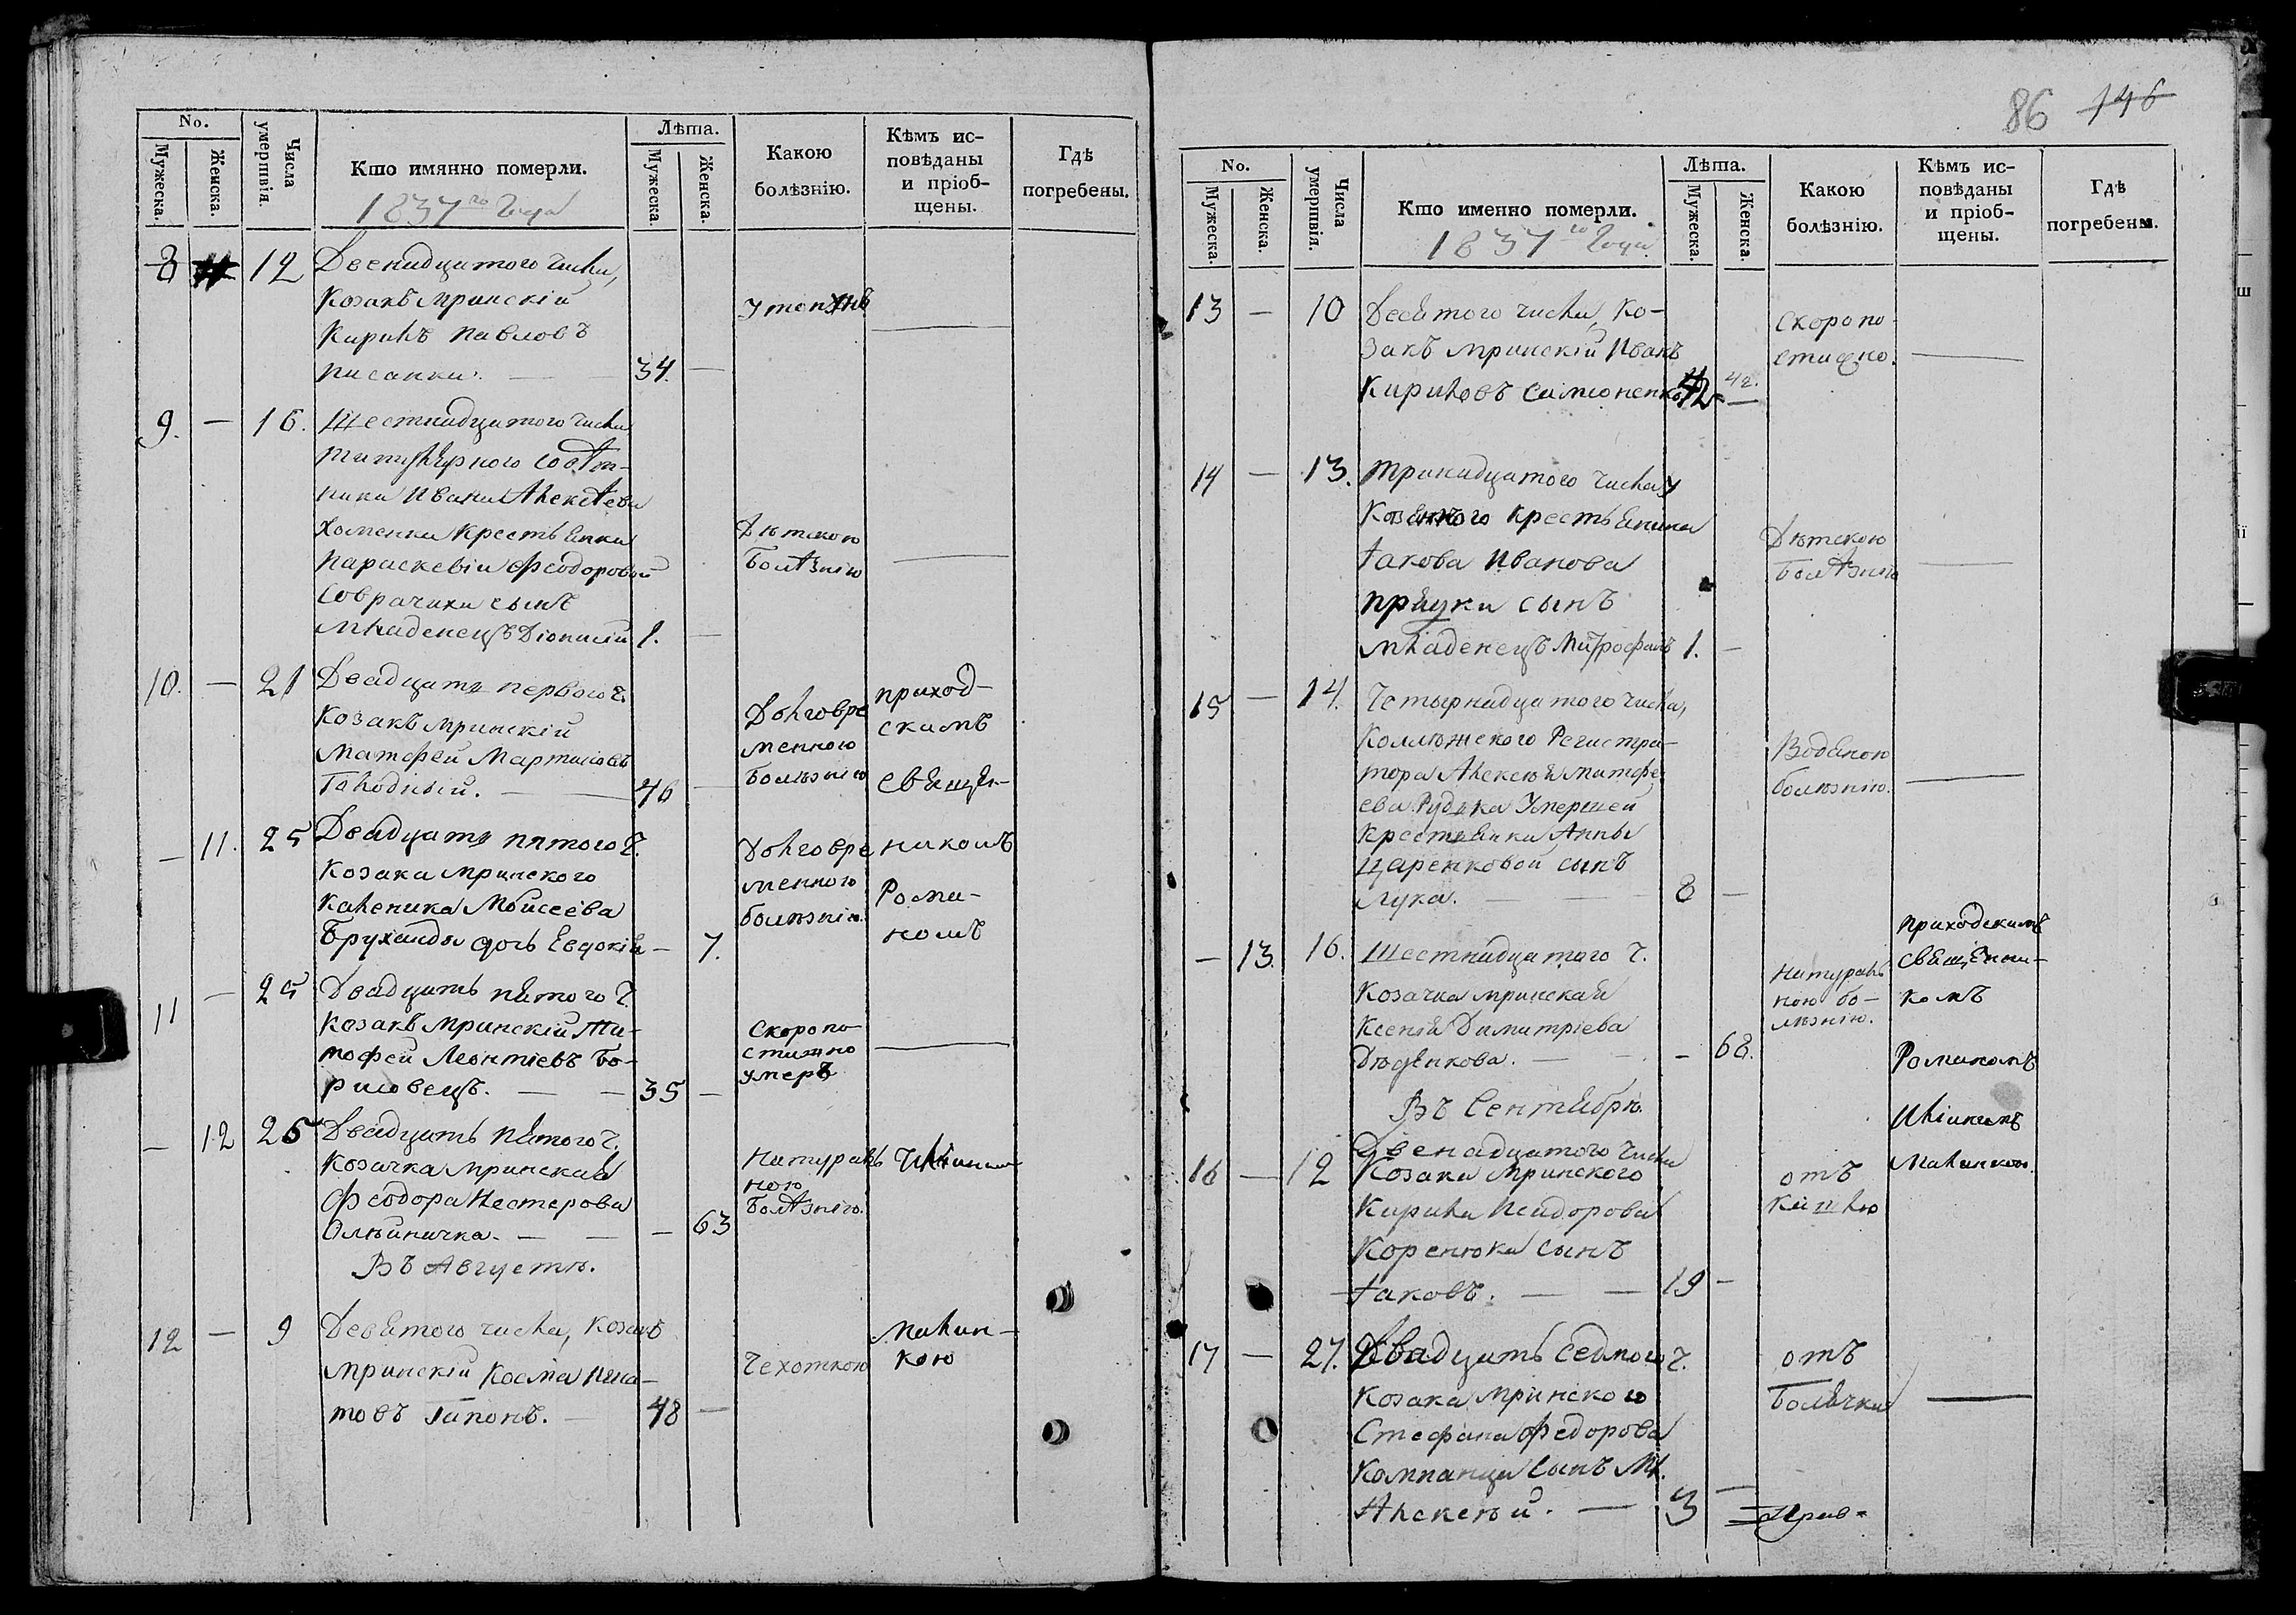 No.
Мужеска.
Женска.
Числа умершвія.
Кто имянно померли.
1837го Года
Лѣта.
Мужеска.
Женска.
Какою
болѣзнію.
Кѣмъ ис-
повѣданы
и пріоб-
щены.
Гдѣ
погребены.
8 12 Двенадцатого числа,
Козакъ мринскій
Кирилъ Павловъ
Писанка. — 34. —
утопунъ —
9. — 16. Шестнадцатого числа
титулярного совѣт-
ника Ивана Алексѣева
Хоменка крестьянки
Параскевіи Феодоровой
сынъ
младенецъ Діонисій 1. —
Дѣтскою
болѣзнію —
10. — 21 Двадцать первого ч.
Козакъ мринскій
Матфей Мартиновъ
Голодный. — 46 —
Долговре
менною
болѣзнію
приход-
скимъ
священ-
— 11. 25 Двадцать пятого ч.
Козака мринского
Каленика Мойсеева
Бруханды дочь Евдокія — 7.
Долговре
менною
болѣзнію.
никомъ
Рома-
номъ
11 — 25 Двадцать пятого ч.
Козакъ мринскій Ти-
мофей Леонтіевъ Бо-
рисовецъ. — — 35 —
Скоропо
стижно
умеръ —
— 12 25 Двадцать пятого ч.
Козачка мринская
Феодора Нестерова
Олѣйничка. — — — 63
Натураль
ною
болѣзнію.
Въ Августѣ.
12 — 9 Девятого числа, Козакъ
мринскій Косма Игна-
товъ Гапонъ. — 48 —
Чехоткою
Малин-
кою
86 146
No.
Мужеска.
Женска.
Числа умершвія.
Кто именно померли.
1837го Года.
Лѣта.
Мужеска.
Женска.
Какою
болѣзнію.
Кѣмъ ис-
повѣданы
и пріоб-
щены.
Гдѣ
погребены.
13 — 10 Десятого числа, Ко-
закъ мринскій Иванъ
Кириловъ Симоненко 42 — 42.
Скоропо
стижно. —
14 — 13. Тринадцатого числа, у
Козенного крестьянина
Іакова Иванова
сынъ
младенецъ Митрофанъ 1. —
Дѣтскою
болѣзнію —
15 — 14. Четырнадцатого числа,
Коллѣжского Регистра-
тора Алексея Матфе-
ева Рудька умершей
крестьянки Анны
Царенковой сынъ
Лука. — — 8 —
Водяною
болѣзнію. —
— 13. 16. Шестнадцатого ч.
Козачка мринская
Ксенія Димитріева
Дѣденкова. — — 68.
Натураль
ною бо-
лѣзнію.
приходскимъ
священни-
комъ
Романомъ
Иліинскимъ
Малинкою.
Въ Сентябрѣ.
Двенадцатого числа
16 — 12 Козака мринского
Кирила Исидорова
Коренюка сынъ
Іаковъ. — — 19 —
отъ
17 — 27. Двадцать седмого ч.
Козака мринского
Стефана Федорова
Компанца сынъ мл.
Алексѣй. — 3 —
отъ
болячки —